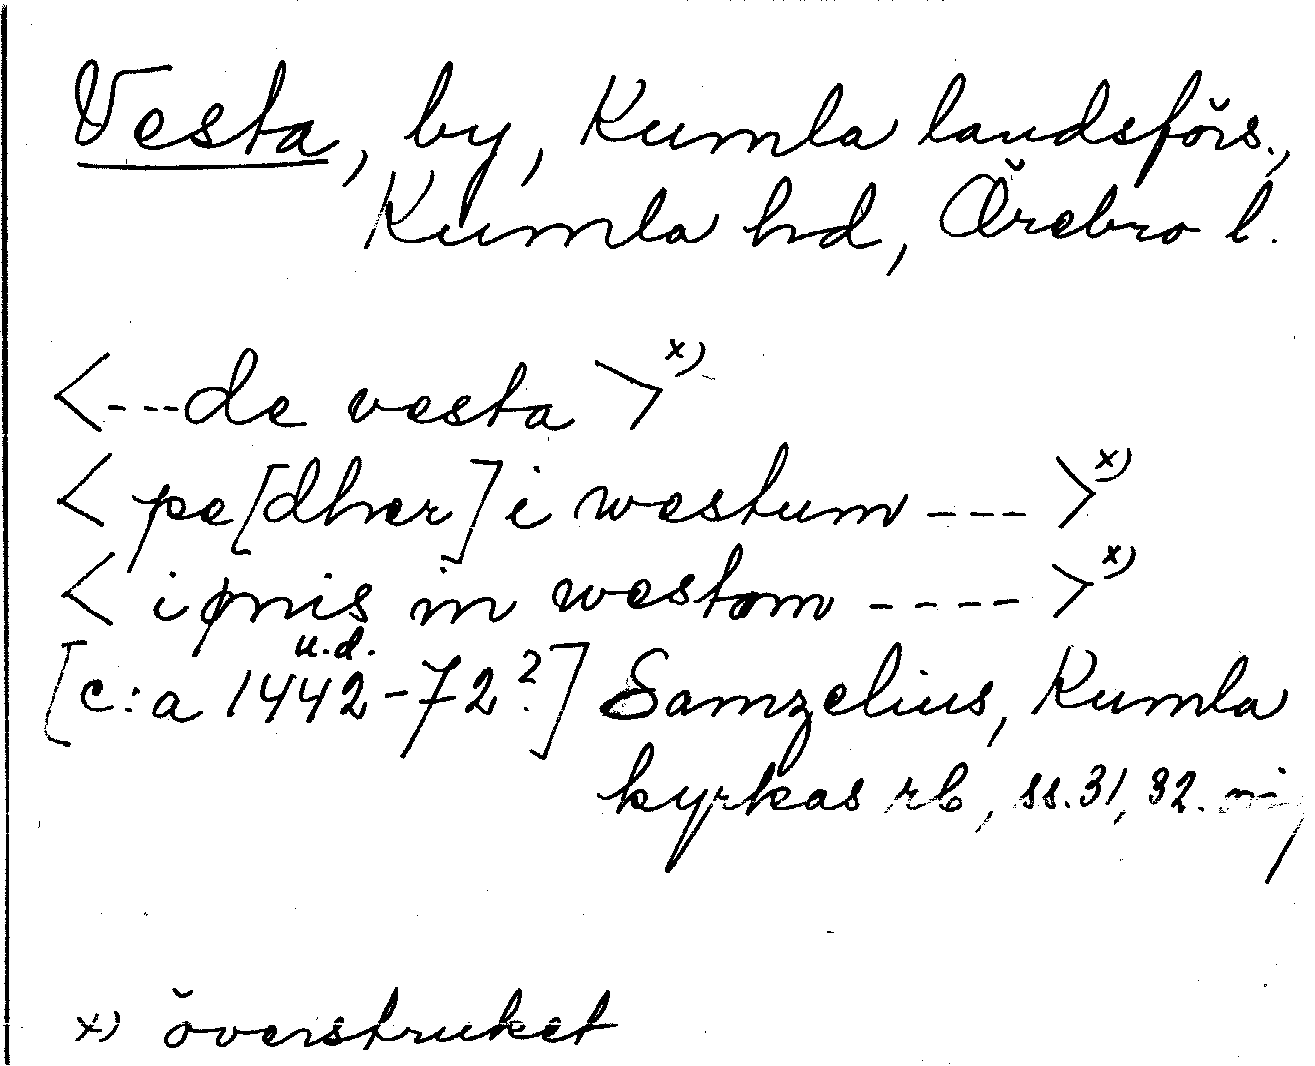 Vesta, by, Kumla landsförs.,
Kumla hd, Örebro l.
<---de vesta >x)
< pe[dher] i westum --- >x)
< ipnis in westom ---- >x)
u.d.
[c:a 1442-72?] Samzelius, Kumla
kyrkas rb, ss. 31, 32.
x) överstruket